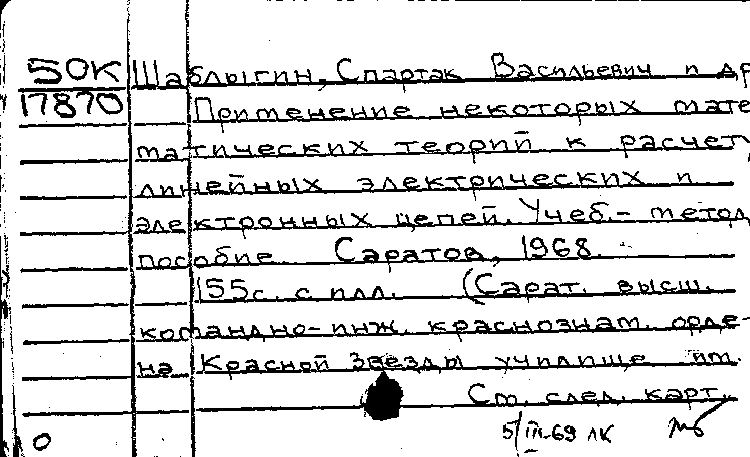 50К Шаблыгин, Спартак Васильевич и др
17870 Применение некоторых мате
матических теорий к расчету
линейных электрических и
электронных цепей. Учеб.- метод
пособие. Саратов, 1968.
155с. с илл. (Сарат. высш.
командно-инж. краснознам. орде-
на Красной Звезды училище им.
См. след. карт.
5/III-69 ЛК